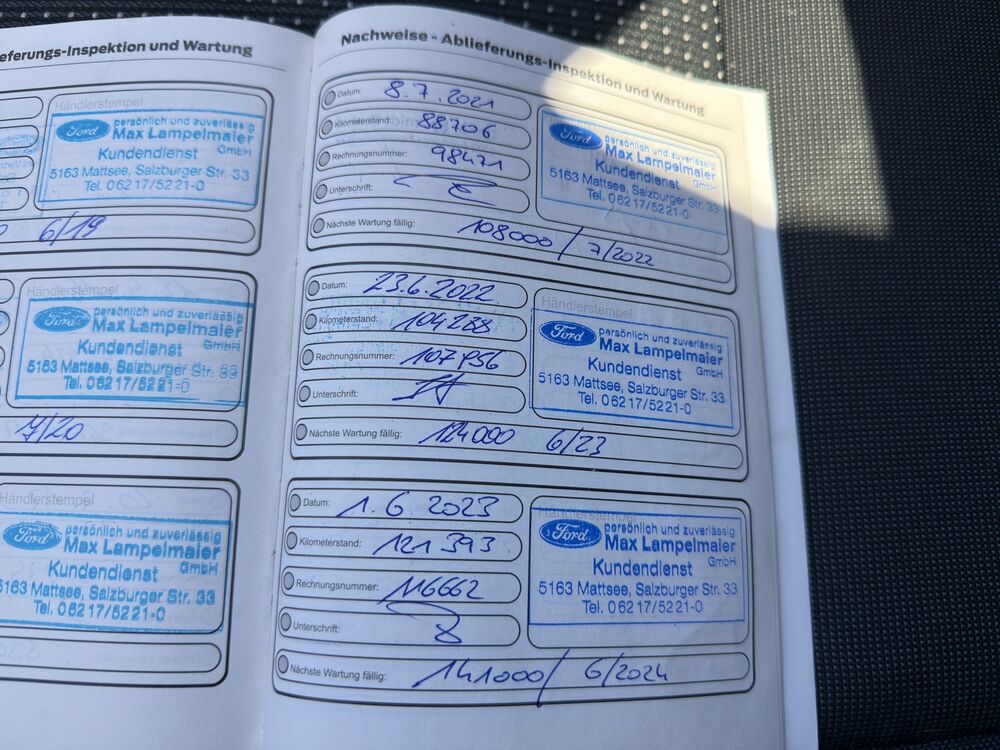 eferungs-Inspektion und Wartung
Händlerstempel
Ford persönlich und zuverlässig
Max Lampelmaier
GmbH
Kundendienst
5163 Mattsee, Salzburger Str. 33
Tel. 06217/5221-0
6/19
Händlerstempel
Ford persönlich und zuverlässig
Max Lampelmaier
GmbH
Kundendienst
5163 Mattsee, Salzburger Str. 33
Tel. 06217/5221-0
7/20
Händlerstempel
Ford persönlich und zuverlässig
Max Lampelmaier
GmbH
Kundendienst
5163 Mattsee, Salzburger Str. 33
Tel. 06217/5221-0
Nachweise - Ablieferungs-Inspektion und Wartung
Datum: 8.7.2021
Kilometerstand: 88706
Rechnungsnummer: 98471
Unterschrift:
Ford persönlich und zuverlässig
Max Lampelmaier
GmbH
Kundendienst
5163 Mattsee, Salzburger Str. 33
Tel. 06217/5221-0
Nächste Wartung fällig: 108000 / 7/2022
Datum: 23.6.2022
Kilometerstand: 104288
Rechnungsnummer: 107956
Unterschrift:
Händlerstempel
Ford persönlich und zuverlässig
Max Lampelmaier
GmbH
Kundendienst
5163 Mattsee, Salzburger Str. 33
Tel. 06217/5221-0
Nächste Wartung fällig: 124000 6/23
Datum: 1.6.2023
Kilometerstand: 121393
Rechnungsnummer: 116662
Unterschrift:
Händlerstempel
Ford persönlich und zuverlässig
Max Lampelmaier
GmbH
Kundendienst
5163 Mattsee, Salzburger Str. 33
Tel. 06217/5221-0
Nächste Wartung fällig: 141000/ 6/2024